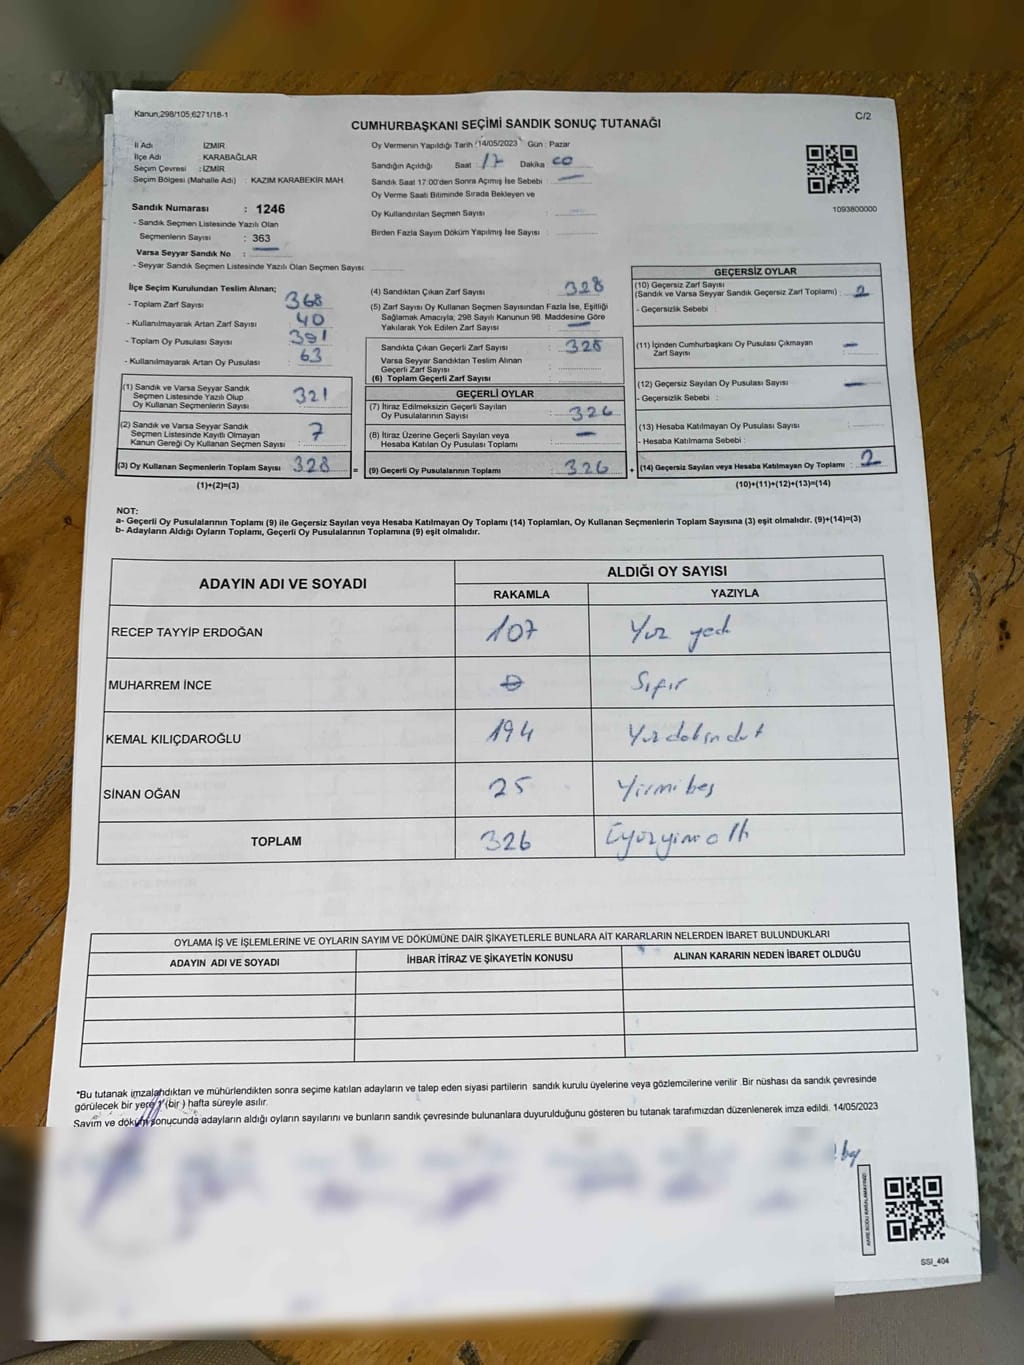 Kanun,298/105,6271/18-1
C/2
CUMHURBAŞKANI SEÇİMİ SANDIK SONUÇ TUTANAĞI
İl Adı : İZMİR
İlçe Adı : KARABAĞLAR
Seçim Çevresi : İZMİR
Seçim Bölgesi (Mahalle Adı) : KAZIM KARABEKİR MAH.
Oy Vermenin Yapıldığı Tarih :14/05/2023 Gün : Pazar
Sandığın Açıldığı Saat 17 Dakika 00
Sandık Saat 17:00'den Sonra Açımış İse Sebebi : —
Oy Verme Saati Bitiminde Sırada Bekleyen ve
Oy Kullandırılan Seçmen Sayısı :
Birden Fazla Sayım Döküm Yapılmış İse Sayısı :
1093800000
Sandık Numarası : 1246
- Sandık Seçmen Listesinde Yazılı Olan
Seçmenlerin Sayısı : 363
Varsa Seyyar Sandık No : —
- Seyyar Sandık Seçmen Listesinde Yazılı Olan Seçmen Sayısı:
İlçe Seçim Kurulundan Teslim Alınan;
- Toplam Zarf Sayısı : 368
- Kullanılmayarak Artan Zarf Sayısı : 40
- Toplam Oy Pusulası Sayısı : 391
- Kullanılmayarak Artan Oy Pusulası : 63
(1) Sandık ve Varsa Seyyar Sandık
Seçmen Listesinde Yazılı Olup
Oy Kullanan Seçmenlerin Sayısı : 321
(2) Sandık ve Varsa Seyyar Sandık
Seçmen Listesinde Kayıtlı Olmayan
Kanun Gereği Oy Kullanan Seçmen Sayısı : 7
(3) Oy Kullanan Seçmenlerin Toplam Sayısı : 328
(1)+(2)=(3)
=
(4) Sandıktan Çıkan Zarf Sayısı : 328
(5) Zarf Sayısı Oy Kullanan Seçmen Sayısından Fazla İse, Eşitliği
Sağlamak Amacıyla; 298 Sayılı Kanunun 98. Maddesine Göre
Yakılarak Yok Edilen Zarf Sayısı : —
Sandıkta Çıkan Geçerli Zarf Sayısı : 328
Varsa Seyyar Sandıktan Teslim Alınan
Geçerli Zarf Sayısı :
(6) Toplam Geçerli Zarf Sayısı :
GEÇERLİ OYLAR
(7) İtiraz Edilmeksizin Geçerli Sayılan
Oy Pusulalarının Sayısı : 326
(8) İtiraz Üzerine Geçerli Sayılan veya
Hesaba Katılan Oy Pusulalarının Toplamı : —
(9) Geçerli Oy Pusulalarının Toplamı : 326
+
GEÇERSİZ OYLAR
(10) Geçersiz Zarf Sayısı
(Sandık ve Varsa Seyyar Sandık Geçersiz Zarf Toplamı) : 2
- Geçersizlik Sebebi :
(11) İçinden Cumhurbaşkanı Oy Pusulası Çıkmayan
Zarf Sayısı : —
(12) Geçersiz Sayılan Oy Pusulası Sayısı : —
- Geçersizlik Sebebi :
(13) Hesaba Katılmayan Oy Pusulası Sayısı :
- Hesaba Katılmama Sebebi :
(14) Geçersiz Sayılan veya Hesaba Katılmayan Oy Toplamı : 2
(10)+(11)+(12)+(13)=(14)
NOT:
a- Geçerli Oy Pusulalarının Toplamı (9) ile Geçersiz Sayılan veya Hesaba Katılmayan Oy Toplamı (14) Toplamları, Oy Kullanan Seçmenlerin Toplam Sayısına (3) eşit olmalıdır. (9)+(14)=(3)
b- Adayların Aldığı Oyların Toplamı, Geçerli Oy Pusulalarının Toplamına (9) eşit olmalıdır.
ADAYIN ADI VE SOYADI
ALDIĞI OY SAYISI
RAKAMLA YAZIYLA
RECEP TAYYİP ERDOĞAN 107 Yüz yedi
MUHARREM İNCE 0 Sıfır
KEMAL KILIÇDAROĞLU 194 Yüzdoksandört
SİNAN OĞAN 25 Yirmibeş
TOPLAM 326 Üçyüzyirmialtı
OYLAMA İŞ VE İŞLEMLERİNE VE OYLARIN SAYIM VE DÖKÜMÜNE DAİR ŞİKAYETLERLE BUNLARA AİT KARARLARIN NELERDEN İBARET BULUNDUKLARI
ADAYIN ADI VE SOYADI İHBAR İTİRAZ VE ŞİKAYETİN KONUSU ALINAN KARARIN NEDEN İBARET OLDUĞU
*Bu tutanak imzalandıktan ve mühürlendikten sonra seçime katılan adayların ve talep eden siyasi partilerin sandık kurulu üyelerine veya gözlemcilerine verilir .Bir nüshası da sandık çevresinde
görülecek bir yere 1 (bir ) hafta süreyle asılır.
Sayım ve döküm sonucunda adayların aldığı oyların sayılarını ve bunların sandık çevresinde bulunanlara duyurulduğunu gösteren bu tutanak tarafımızdan düzenlenerek imza edildi. 14/05/2023
KARE KODU KARALAMAYINIZ!
SSI_404